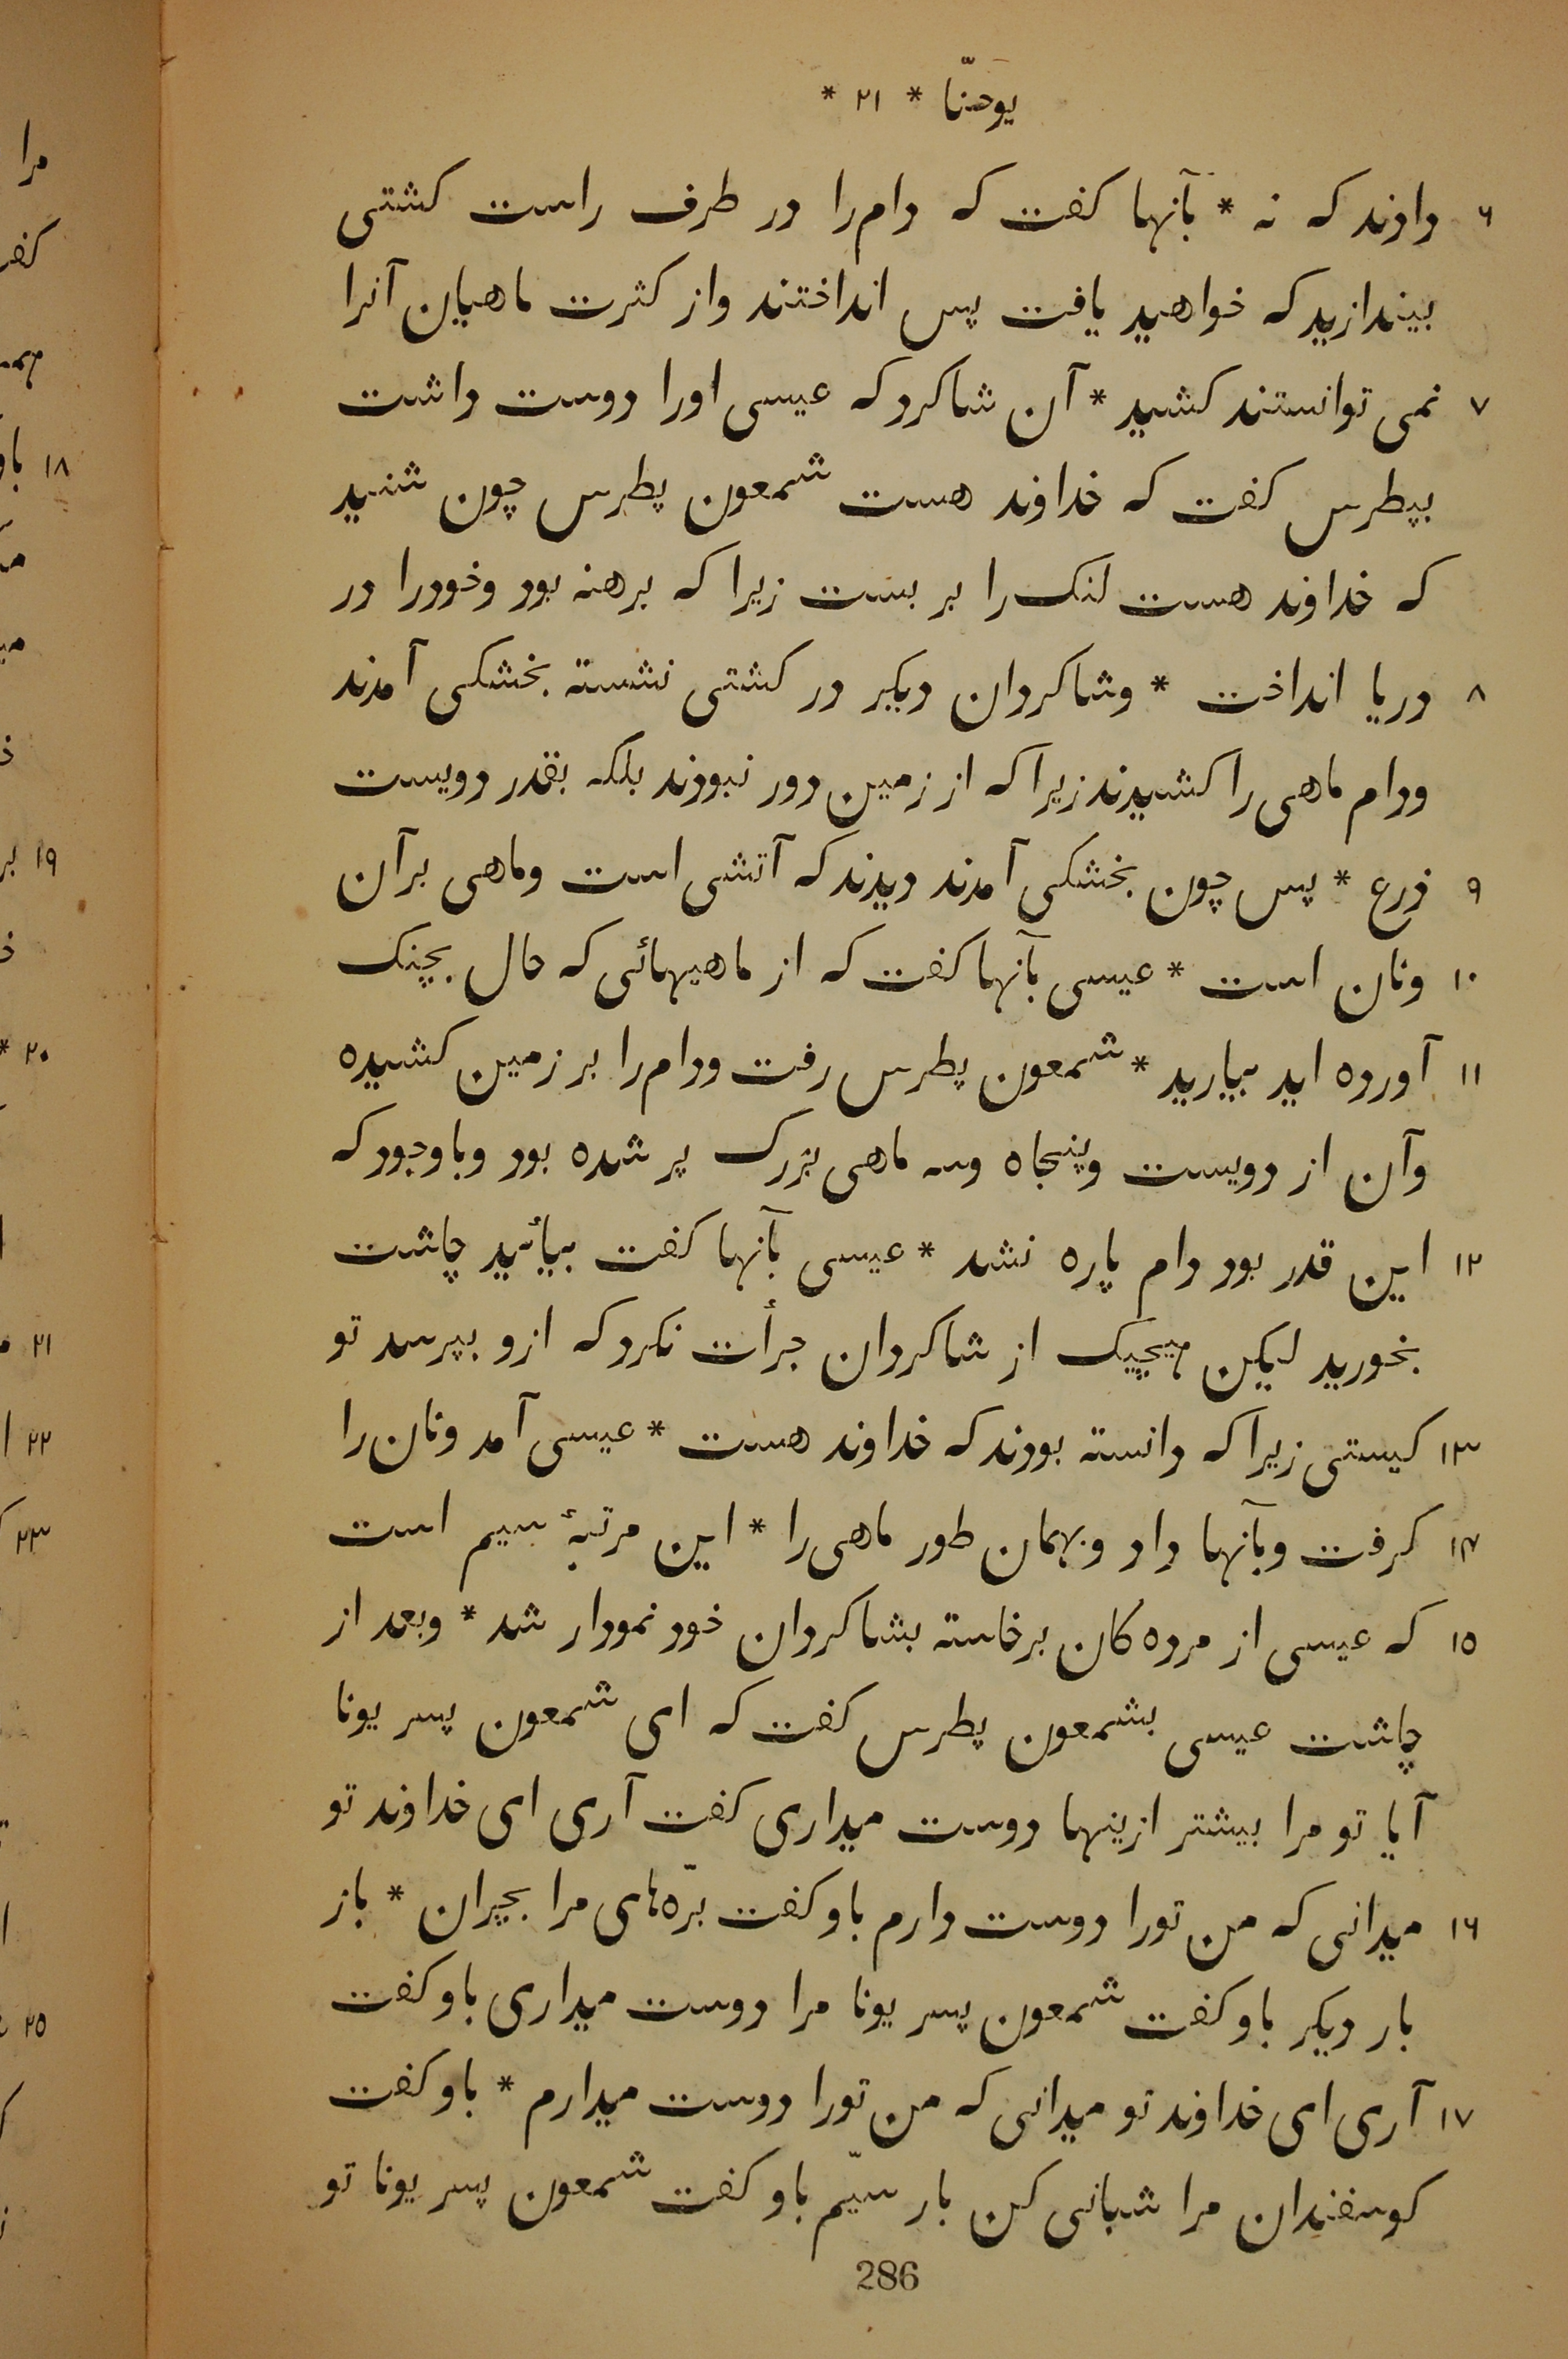 یوحنّا * ۲۱ *
۶ دادند که نه * بآنها کفت که دام را در طرف راست کشتی
بیندازید که خواهید یافت پس انداختند واز کثرت ماهیان آنرا
۷ نمی توانستند کشید * آن شاکرد که عیسی اورا دوست داشت
بپطرس کفت که خداوند هست شمعون پطرس چون شنید
که خداوند هست لنک را بر بست زیرا که برهنه بود وخودرا در
۸ دریا انداخت * وشاکردان دیکر در کشتی نشسته بخشکی آمدند
ودام ماهی را کشیدند زیرا که از زمین دور نبودند بلکه بقدر دویست
۹ ذرع * پس چون بخشکی آمدند دیدند که آتشی است وماهی بر آن
۱۰ ونان است * عیسی بآنها کفت که از ماهیهائی که حال بچنک
۱۱ آورده اید بیارید * شمعون پطرس رفت ودام را بر زمین کشیده
وآن از دویست وپنجاه وسه ماهی بزرک پر شده بود وباوجود که
۱۲ این قدر بود دام پاره نشد * عیسی بآنها کفت بیائید چاشت
بخورید لیکن هیچیک از شاکردان جرأت نکرد که ازو بپرسد تو
۱۳ کیستی زیرا که دانسته بودند که خداوند هست * عیسی آمد ونان را
۱۴ کرفت وبآنها داد وبهمان طور ماهی را * این مرتبهٔ سیم است
۱۵ که عیسی از مرده کان برخاسته بشاکردان خود نمودار شد * وبعد از
چاشت عیسی بشمعون پطرس کفت که ای شمعون پسر یونا
آیا تو مرا بیشتر ازینها دوست میداری کفت آری ای خداوند تو
۱۶ میدانی که من تورا دوست دارم باو کفت برّه‌های مرا بچران * باز
بار دیکر باو کفت شمعون پسر یونا مرا دوست میداری باو کفت
۱۷ آری ای خداوند تو میدانی که من تورا دوست میدارم * باو کفت
کوسفندان مرا شبانی کن بار سیّم باو کفت شمعون پسر یونا تو
286
مرا
۱۸
۱۹
۲۰ *
۲۱
۲۲
۲۳
۲۵